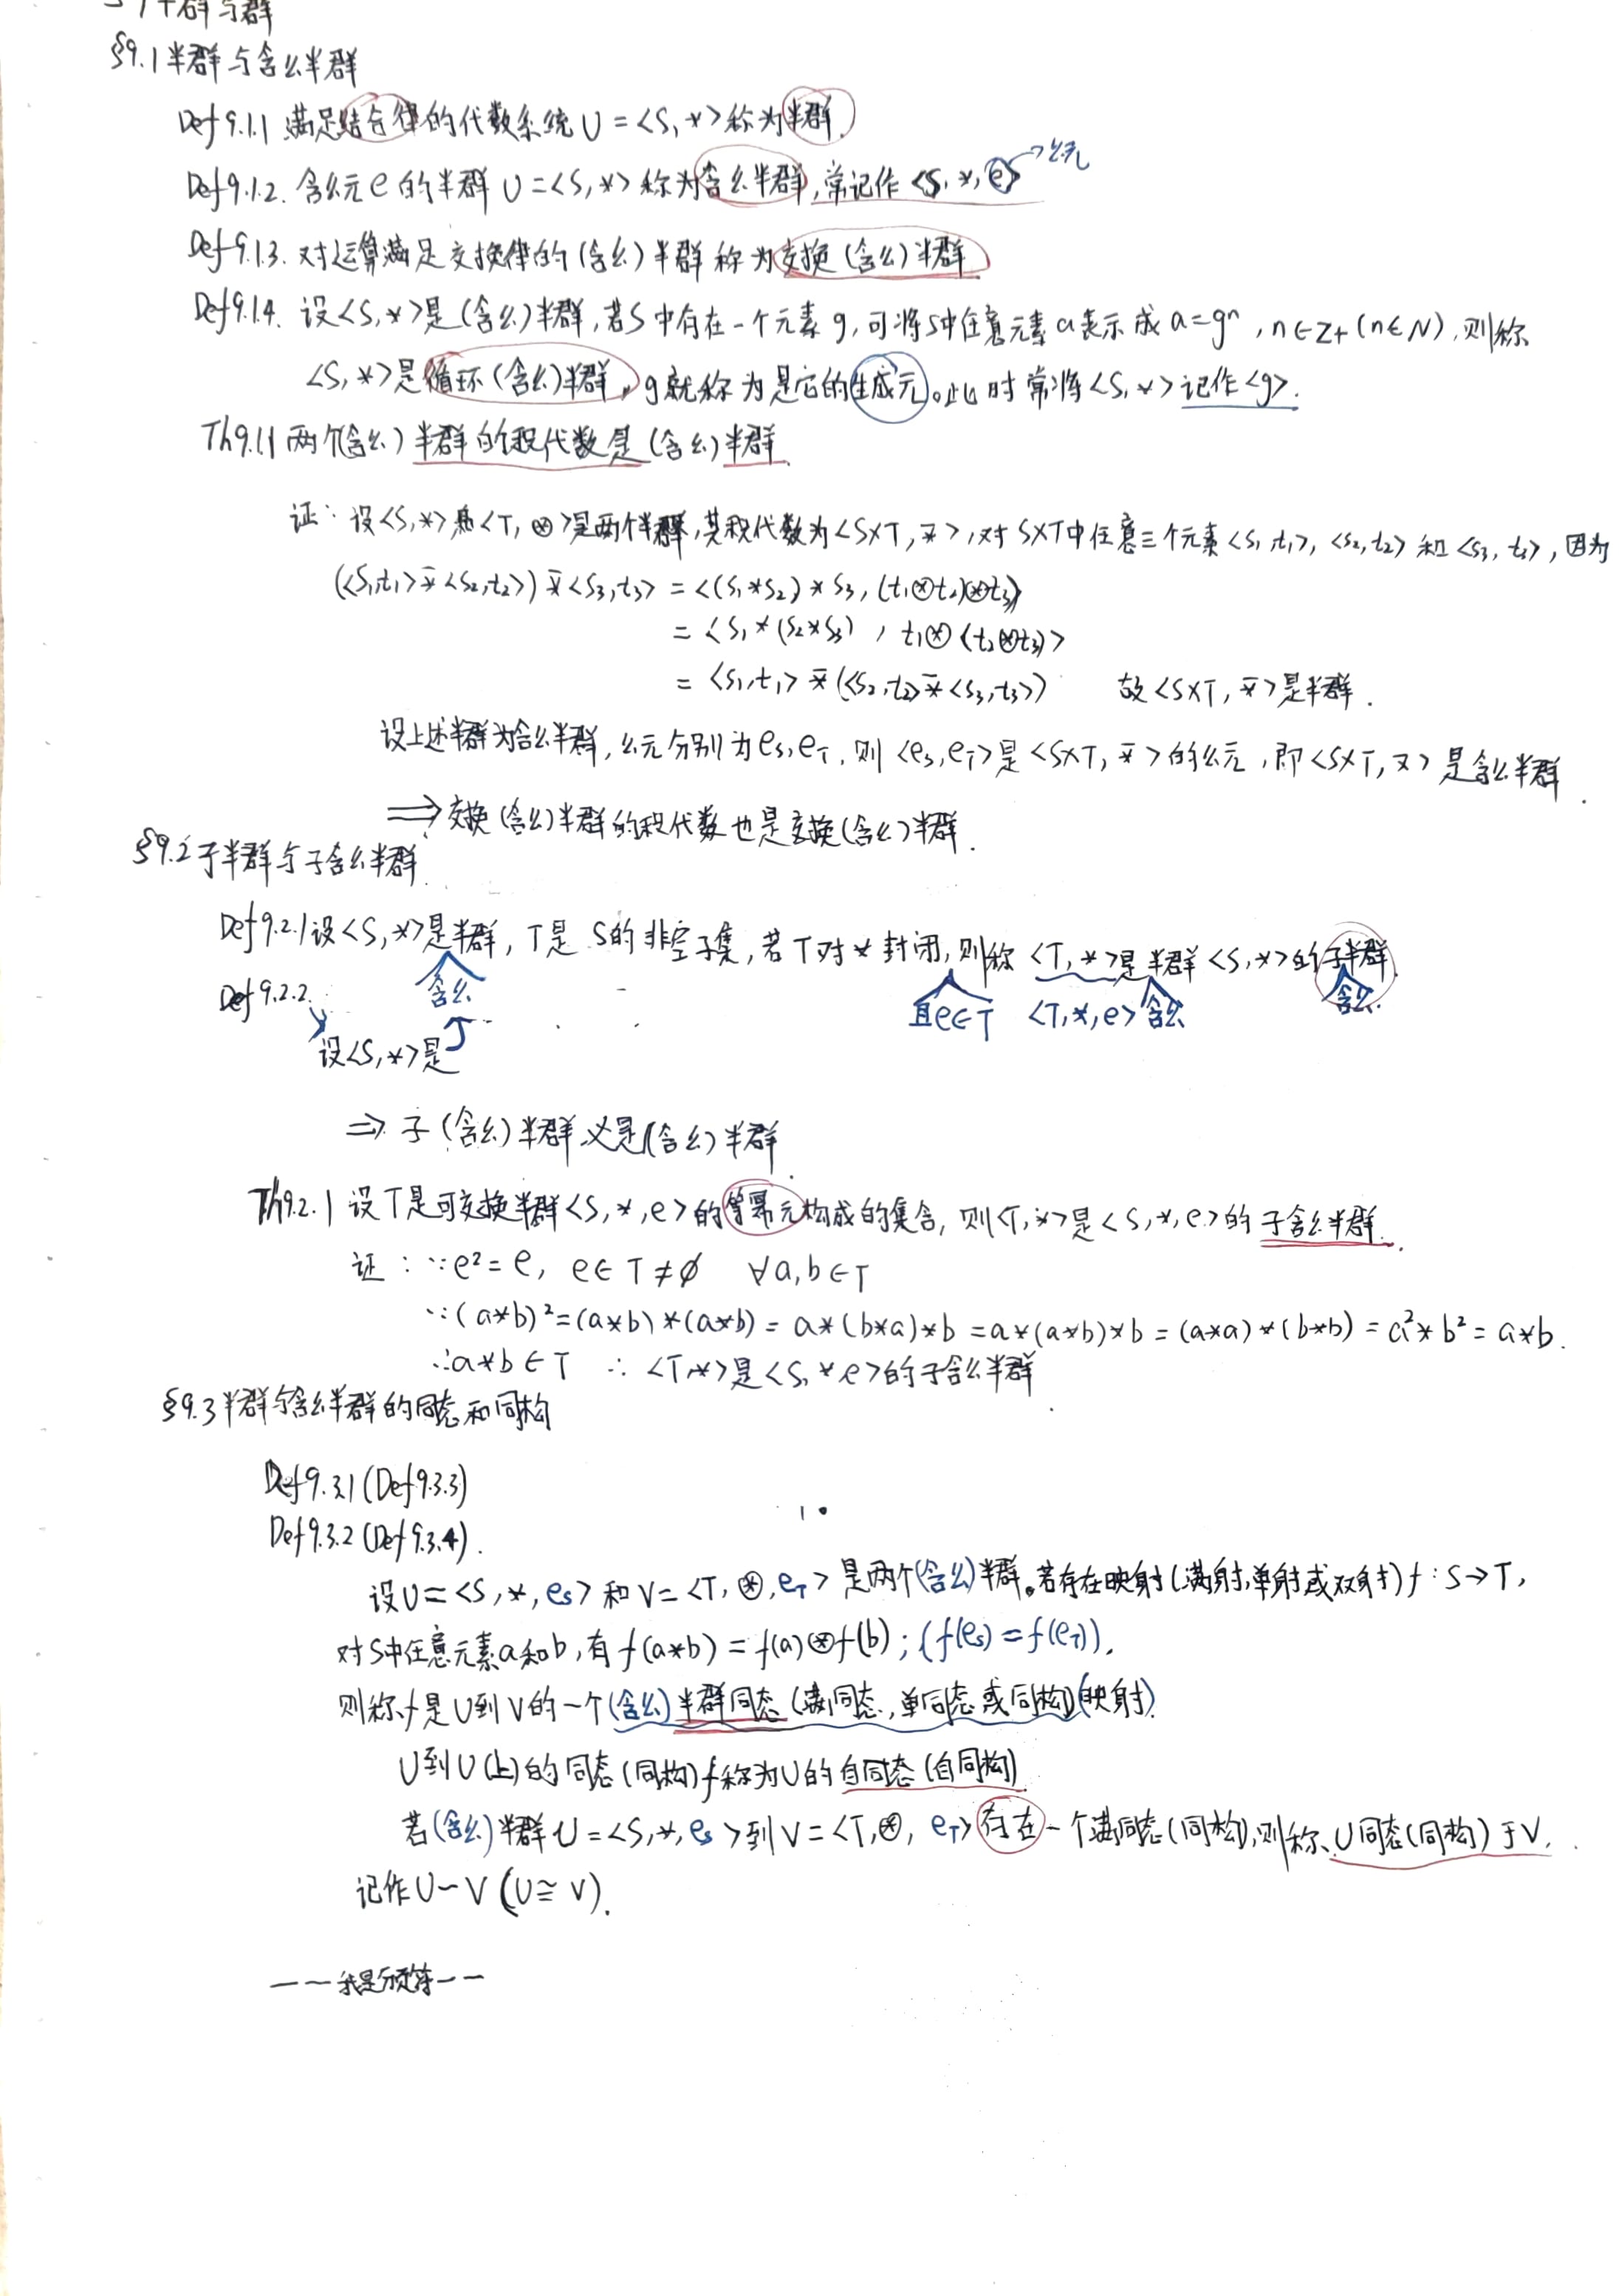 半群与群
§9.1 半群与含幺半群
Def 9.1.1 满足结合律的代数系统 U = <S, *> 称为半群.
Def 9.1.2. 含幺元 e 的半群 U = <S, *> 称为含幺半群, 常记作 <S, *, e> → 幺元
Def 9.1.3. 对运算满足交换律的(含幺)半群称为交换(含幺)半群
Def 9.1.4. 设<S, *>是(含幺)半群, 若S中存在一个元素g, 可将S中任意元素a表示成 a=gⁿ, n∈Z+ (n∈N), 则称
<S, *>是循环(含幺)半群, g就称为是它的生成元。此时常将<S, *>记作<g>.
Th9.1.1 两个(含幺)半群的积代数是(含幺)半群.
证: 设<S, *>和<T, ⊛>是两个半群, 其积代数为<S×T, ⊼>, 对 S×T中任意三个元素<s₁, t₁>, <s₂, t₂> 和 <s₃, t₃>, 因为
(<s₁,t₁> ⊼ <s₂,t₂>) ⊼ <s₃,t₃> = <(s₁*s₂)*s₃, (t₁⊛t₂)⊛t₃>
= <s₁*(s₂*s₃), t₁⊛(t₂⊛t₃)>
= <s₁,t₁> ⊼ (<s₂,t₂> ⊼ <s₃,t₃>) 故<S×T, ⊼>是半群.
设上述半群为含幺半群, 幺元分别为 eS, eT, 则 <eS, eT>是<S×T, ⊼>的幺元, 即<S×T, ⊼>是含幺半群.
⟹ 交换(含幺)半群的积代数也是交换(含幺)半群.
§9.2 子半群与子含幺半群.
Def 9.2.1 设<S, *>是半群, T是S的非空子集, 若T对*封闭, 则称<T, *>是半群<S, *>的子半群.
Def 9.2.2. 含幺 且e∈T <T, *, e> 含幺 含幺.
设<S, *>是
⇒ 子(含幺)半群必是(含幺)半群.
Th9.2.1 设T是可交换半群<S, *, e>的等幂元构成的集合, 则<T, *>是<S, *, e>的子含幺半群.
证: ∵e²=e, e∈T≠∅ ∀a,b∈T
∵(a*b)²=(a*b)*(a*b)=a*(b*a)*b=a*(a*b)*b=(a*a)*(b*b)=a²*b²=a*b.
∴a*b∈T ∴<T,*>是<S, *, e>的子含幺半群.
§9.3 半群与含幺半群的同态和同构
Def 9.3.1 (Def 9.3.3)
Def 9.3.2 (Def 9.3.4).
设U=<S, *, eS>和V=<T, ⊛, eT>是两个(含幺)半群。若存在映射(满射,单射或双射) f: S→T,
对S中任意元素a和b, 有f(a*b)=f(a)⊛f(b); (f(eS)=f(eT)).
则称f是U到V的一个(含幺)半群同态(满同态,单同态或同构)(映射).
U到U(上)的同态(同构)f称为U的自同态(自同构)
若(含幺)半群U=<S,*,eS>到V=<T,⊛, eT>存在一个满同态(同构),则称U同态(同构)于V.
记作U~V (U≅V).
——我是分页符——